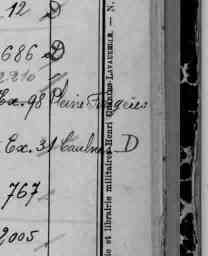 12 D
686 D
2210
Ex. 98 Pleine-Fougères
Ex. 31 Caulnes D
767
2,005
ie et librairie militaires Henri Charles-Lavauzelle. — N.